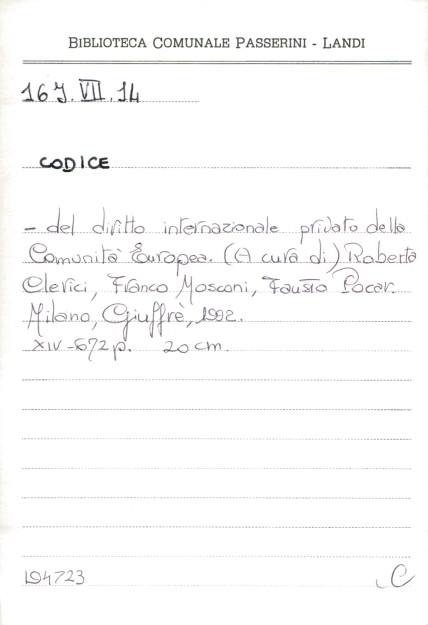 BIBLIOTECA COMUNALE PASSERINI - LANDI
16 J. VII. 14
CODICE
- del diritto internazionale privato della
Comunità Europea. (A cura di) Roberta
Clerici, Franco Mosconi, Fausto Pocar.
Milano, Giuffrè, 1992.
XIV-672 p. 20 cm.
194723 C